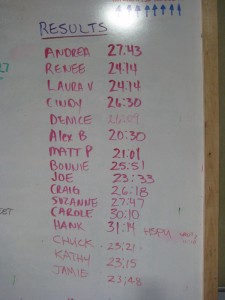 RESULTS
ANDREA 27:43
RENEE 24:14
LAURA V 24:14
CINDY 26:30
DENICE 26:09
ALEX B 20:30
MATT P 21:01
BONNIE 25:51
JOE 23:33
CRAIG 26:18
SUZANNE 27:47
CAROLE 30:10
HANK 31:14
CHUCK 23:21
KATHY 23:15
JAMIE 23:48